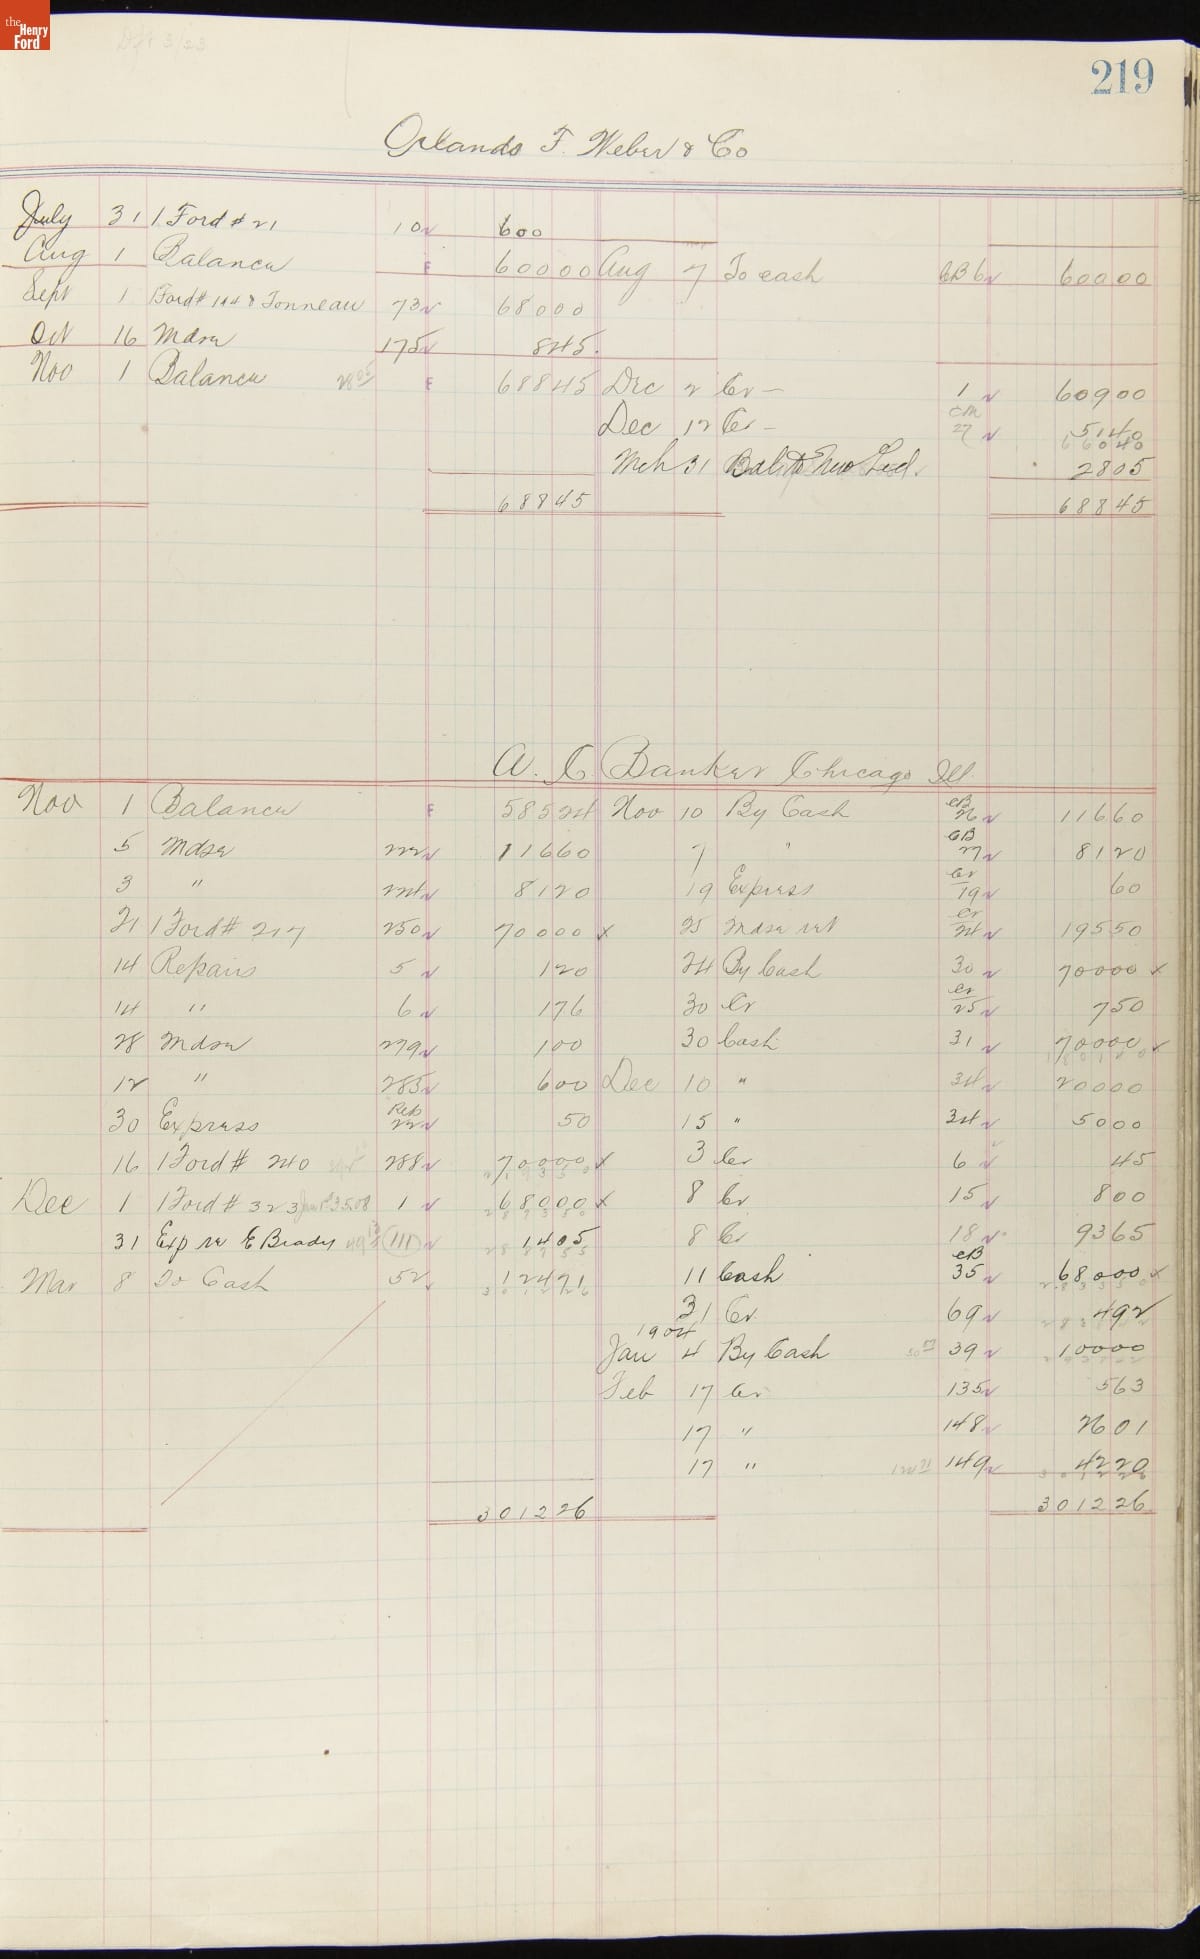 the Henry Ford
219
Orlando F. Weber & Co
July 31 1 Ford # 21 10 600
Aug 1 Balance F 60000 Aug 7 To cash CB 6 60000
Sept 1 1 Ford # 114 & Tonneau 73 68000
Oct 16 Mdse 175 845
Nov 1 Balance 2805 F 68845 Dec 2 Cr — 1 60900
Dec 12 Cr — CM 27 5140
66040
Mch 31 Bal to New Led. 2805
68845 68845
A. C. Banker Chicago Ill.
Nov 1 Balance F 58524 Nov 10 By Cash CB 26 11660
5 Mdse 222 11660 7 " CB 27 8120
3 " 224 8120 19 Express Cr 19 60
21 1 Ford # 217 250 70000 x 25 Mdse ret Cr 24 19550
14 Repairs 5 120 24 By Cash 30 70000 x
14 " 6 176 30 Cr Cr 25 750
28 Mdse 279 100 30 Cash 31 70000 x
12 " 285 600 Dec 10 " 34 20000
30 Express Rep 22 50 15 " 34 5000
16 1 Ford # 240 288 70000 x 3 Cr 6 45
Dec 1 1 Ford # 323 1 68000 x 8 Cr 15 800
31 Exp re E Brady 111 1405 8 Cr 18 9365
Mar 8 To Cash 52 12471 11 Cash CB 35 68000 x
31 Cr 69 492
1904
Jan 4 By Cash 39 10000
Feb 17 Cr 135 563
17 " 148 2601
17 " 12471 149 4220
301226 301226